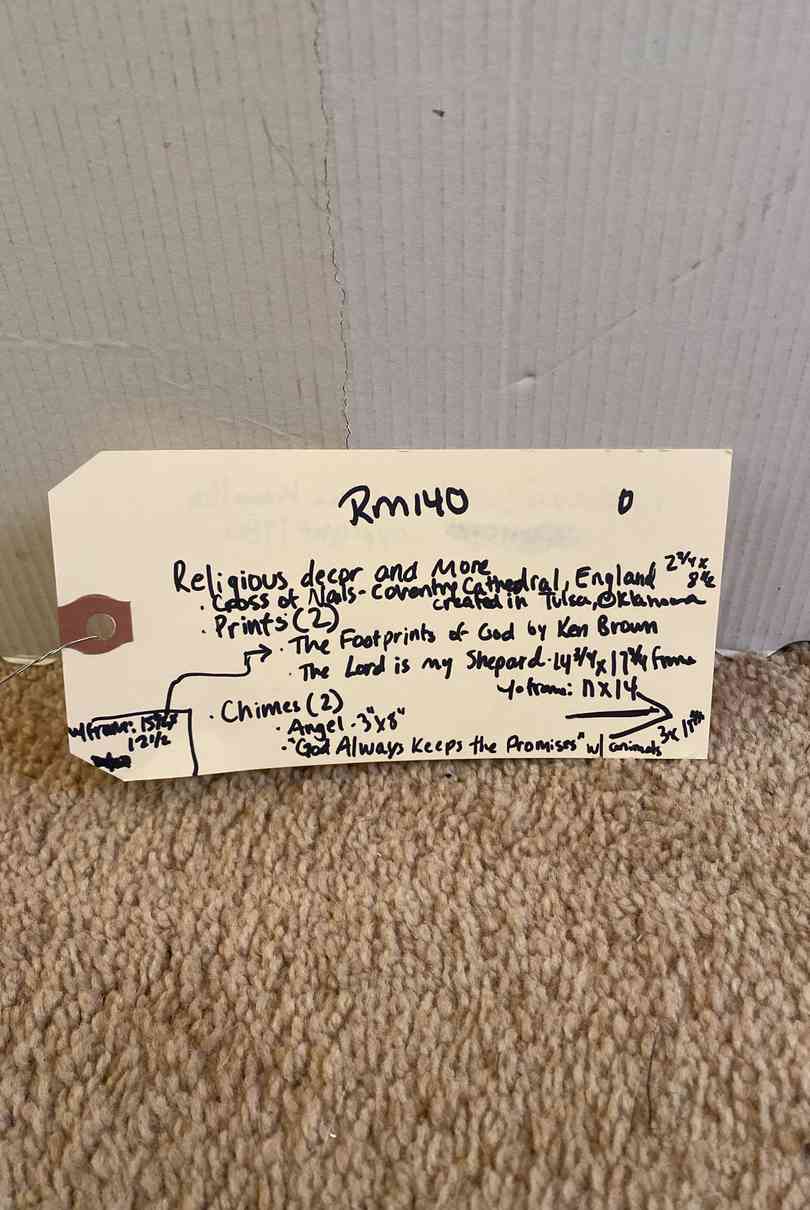 RM140 0
Religious decor and More 2 3/4 x 8 1/2
· Cross of Nails - Coventry Cathedral, England
created in Tulsa, Oklahoma
· Prints (2)
· The Footprints of God by Ken Brown
w/frame: 12 1/2
· The Lord is my Shepard - 14 3/4 x 17 3/4 frame
frame: 11 x 14
· Chimes (2)
· Angel - 3" x 8"
· "God Always Keeps the Promises" w/ animals 3 x